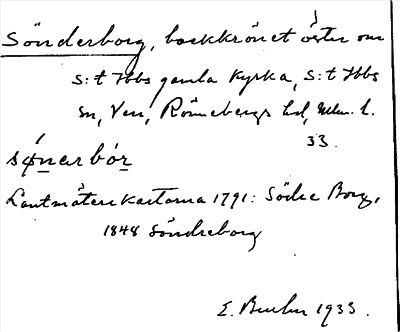 Sönderborg, backkrönet öster om
S:t Ibbs gamla kyrka, S:t Ibbs
sn, Ven, Rönnebergs hd, Mlm. l.
33.
sǿnerbór
Lantmäterikartorna 1791: Södre Borg,
1848 Söndreborg
E. 1933